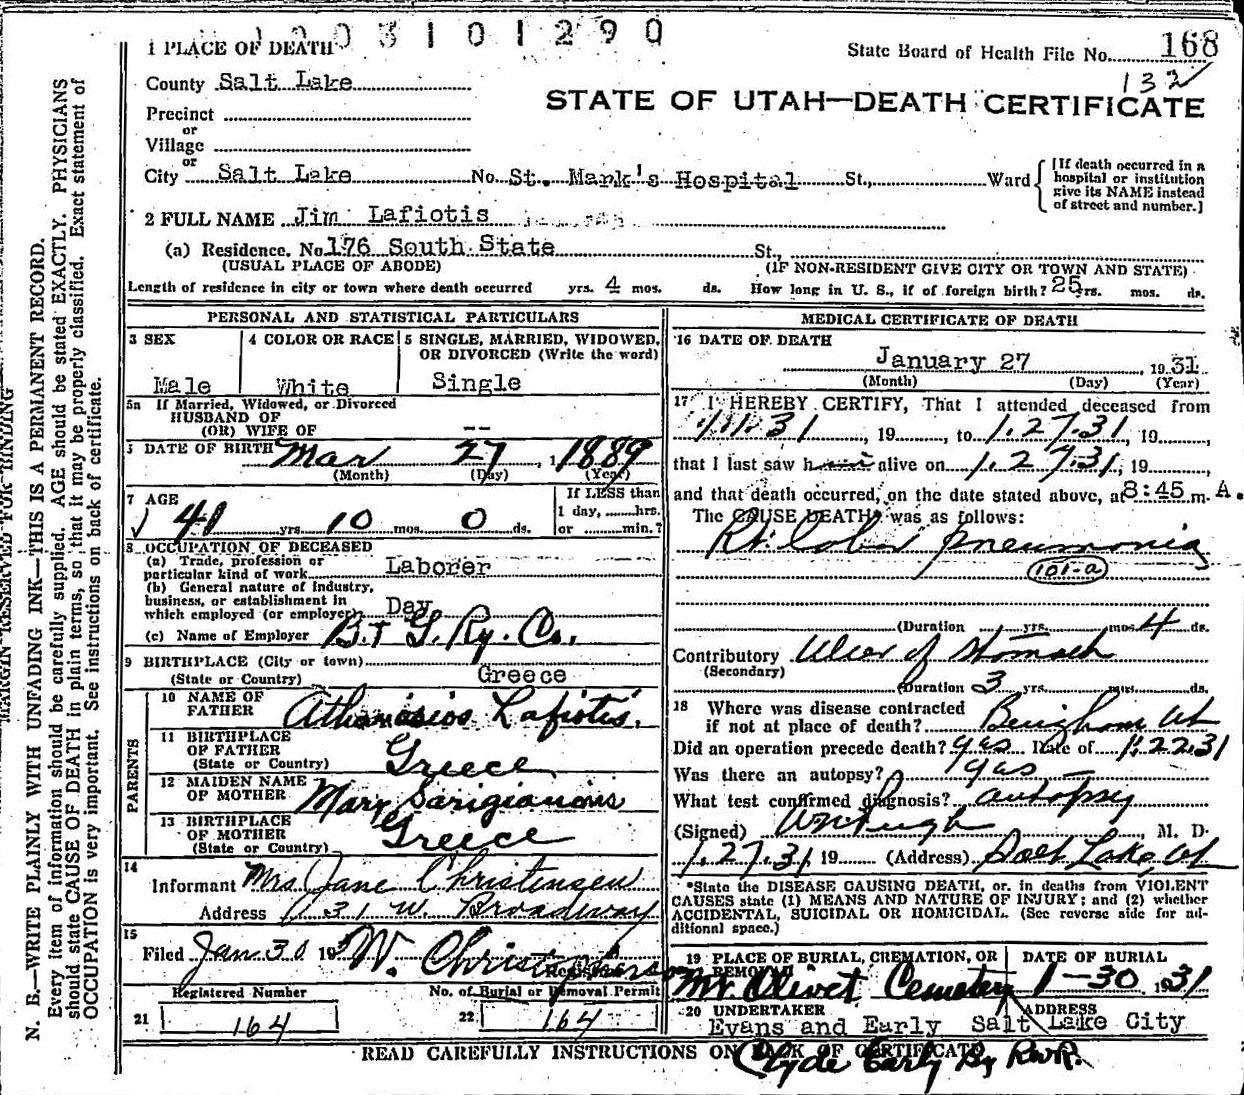 1 PLACE OF DEATH
1 2 0 3 1 0 1 2 9 0
State Board of Health File No. 168
132
County Salt Lake
STATE OF UTAH—DEATH CERTIFICATE
Precinct
or
Village
or
City Salt Lake No. St. Mark's Hospital St., Ward
[If death occurred in a
hospital or institution
give its NAME instead
of street and number.]
2 FULL NAME Jim Lafiotis
(a) Residence. No. 176 South State St.,
(USUAL PLACE OF ABODE) (IF NON-RESIDENT GIVE CITY OR TOWN AND STATE)
Length of residence in city or town where death occurred yrs. 4 mos. ds. How long in U. S., if of foreign birth? 25 yrs. mos. ds.
PERSONAL AND STATISTICAL PARTICULARS
3 SEX
Male
4 COLOR OR RACE
White
5 SINGLE, MARRIED, WIDOWED,
OR DIVORCED (Write the word)
Single
5a If Married, Widowed, or Divorced
HUSBAND OF
(OR) WIFE OF --
DATE OF BIRTH Mar 27, 1889
(Month) (Day) (Year)
7 AGE
41 yrs 10 mos. 0 ds.
If LESS than
1 day, hrs.
or min.?
8 OCCUPATION OF DECEASED
(a) Trade, profession or
particular kind of work Laborer
(b) General nature of industry,
business, or establishment in
which employed (or employer) Day
(c) Name of Employer B. & G. Ry. Co.
9 BIRTHPLACE (City or town)
(State or Country) Greece
PARENTS
10 NAME OF
FATHER Athanasios Lafiotis.
11 BIRTHPLACE
OF FATHER
(State or Country) Greece
12 MAIDEN NAME
OF MOTHER Mary Sarigianis
13 BIRTHPLACE
OF MOTHER
(State or Country) Greece
14
Informant Mrs. Jane Christensen
Address 131 W. Broadway
15
Filed Jan 30 19 W. Christopherson
Registrar
Registered Number
21 164
No. of Burial or Removal Permit
22 164
MEDICAL CERTIFICATE OF DEATH
16 DATE OF DEATH
January 27, 1931
(Month) (Day) (Year)
17 I HEREBY CERTIFY, That I attended deceased from
31, 19, to 1.27.31, 19,
that I last saw him alive on 1.27.31, 19,
and that death occurred, on the date stated above, at 8:45 m. A.
The CAUSE DEATH* was as follows:
Rt. lobar pneumonia
101-a
(Duration yrs. mos 4 ds.
Contributory Ulcer of Stomach
(Secondary)
(Duration 3 yrs. mos. ds.
18 Where was disease contracted
if not at place of death? Bingham Ut
Did an operation precede death? yes Date of 1.22.31
Was there an autopsy? yes
What test confirmed diagnosis? autopsy
(Signed) Pugh, M. D.
1.27.31 19 (Address) Salt Lake, Ut
*State the DISEASE CAUSING DEATH, or, in deaths from VIOLENT
CAUSES state (1) MEANS AND NATURE OF INJURY; and (2) whether
ACCIDENTAL, SUICIDAL OR HOMICIDAL. (See reverse side for ad-
ditional space.)
19 PLACE OF BURIAL, CREMATION, OR
REMOVAL
Mt. Olivet Cemetery
DATE OF BURIAL
1-30, 1931
20 UNDERTAKER
Evans and Early
ADDRESS
Salt Lake City
Clyde Early By RWR.
READ CAREFULLY INSTRUCTIONS ON BACK OF CERTIFICATE
MARGIN RESERVED FOR BINDING
N. B.—WRITE PLAINLY WITH UNFADING INK—THIS IS A PERMANENT RECORD.
Every item of information should be carefully supplied. AGE should be stated EXACTLY. PHYSICIANS
should state CAUSE OF DEATH in plain terms, so that it may be properly classified. Exact statement of
OCCUPATION is very important. See instructions on back of certificate.